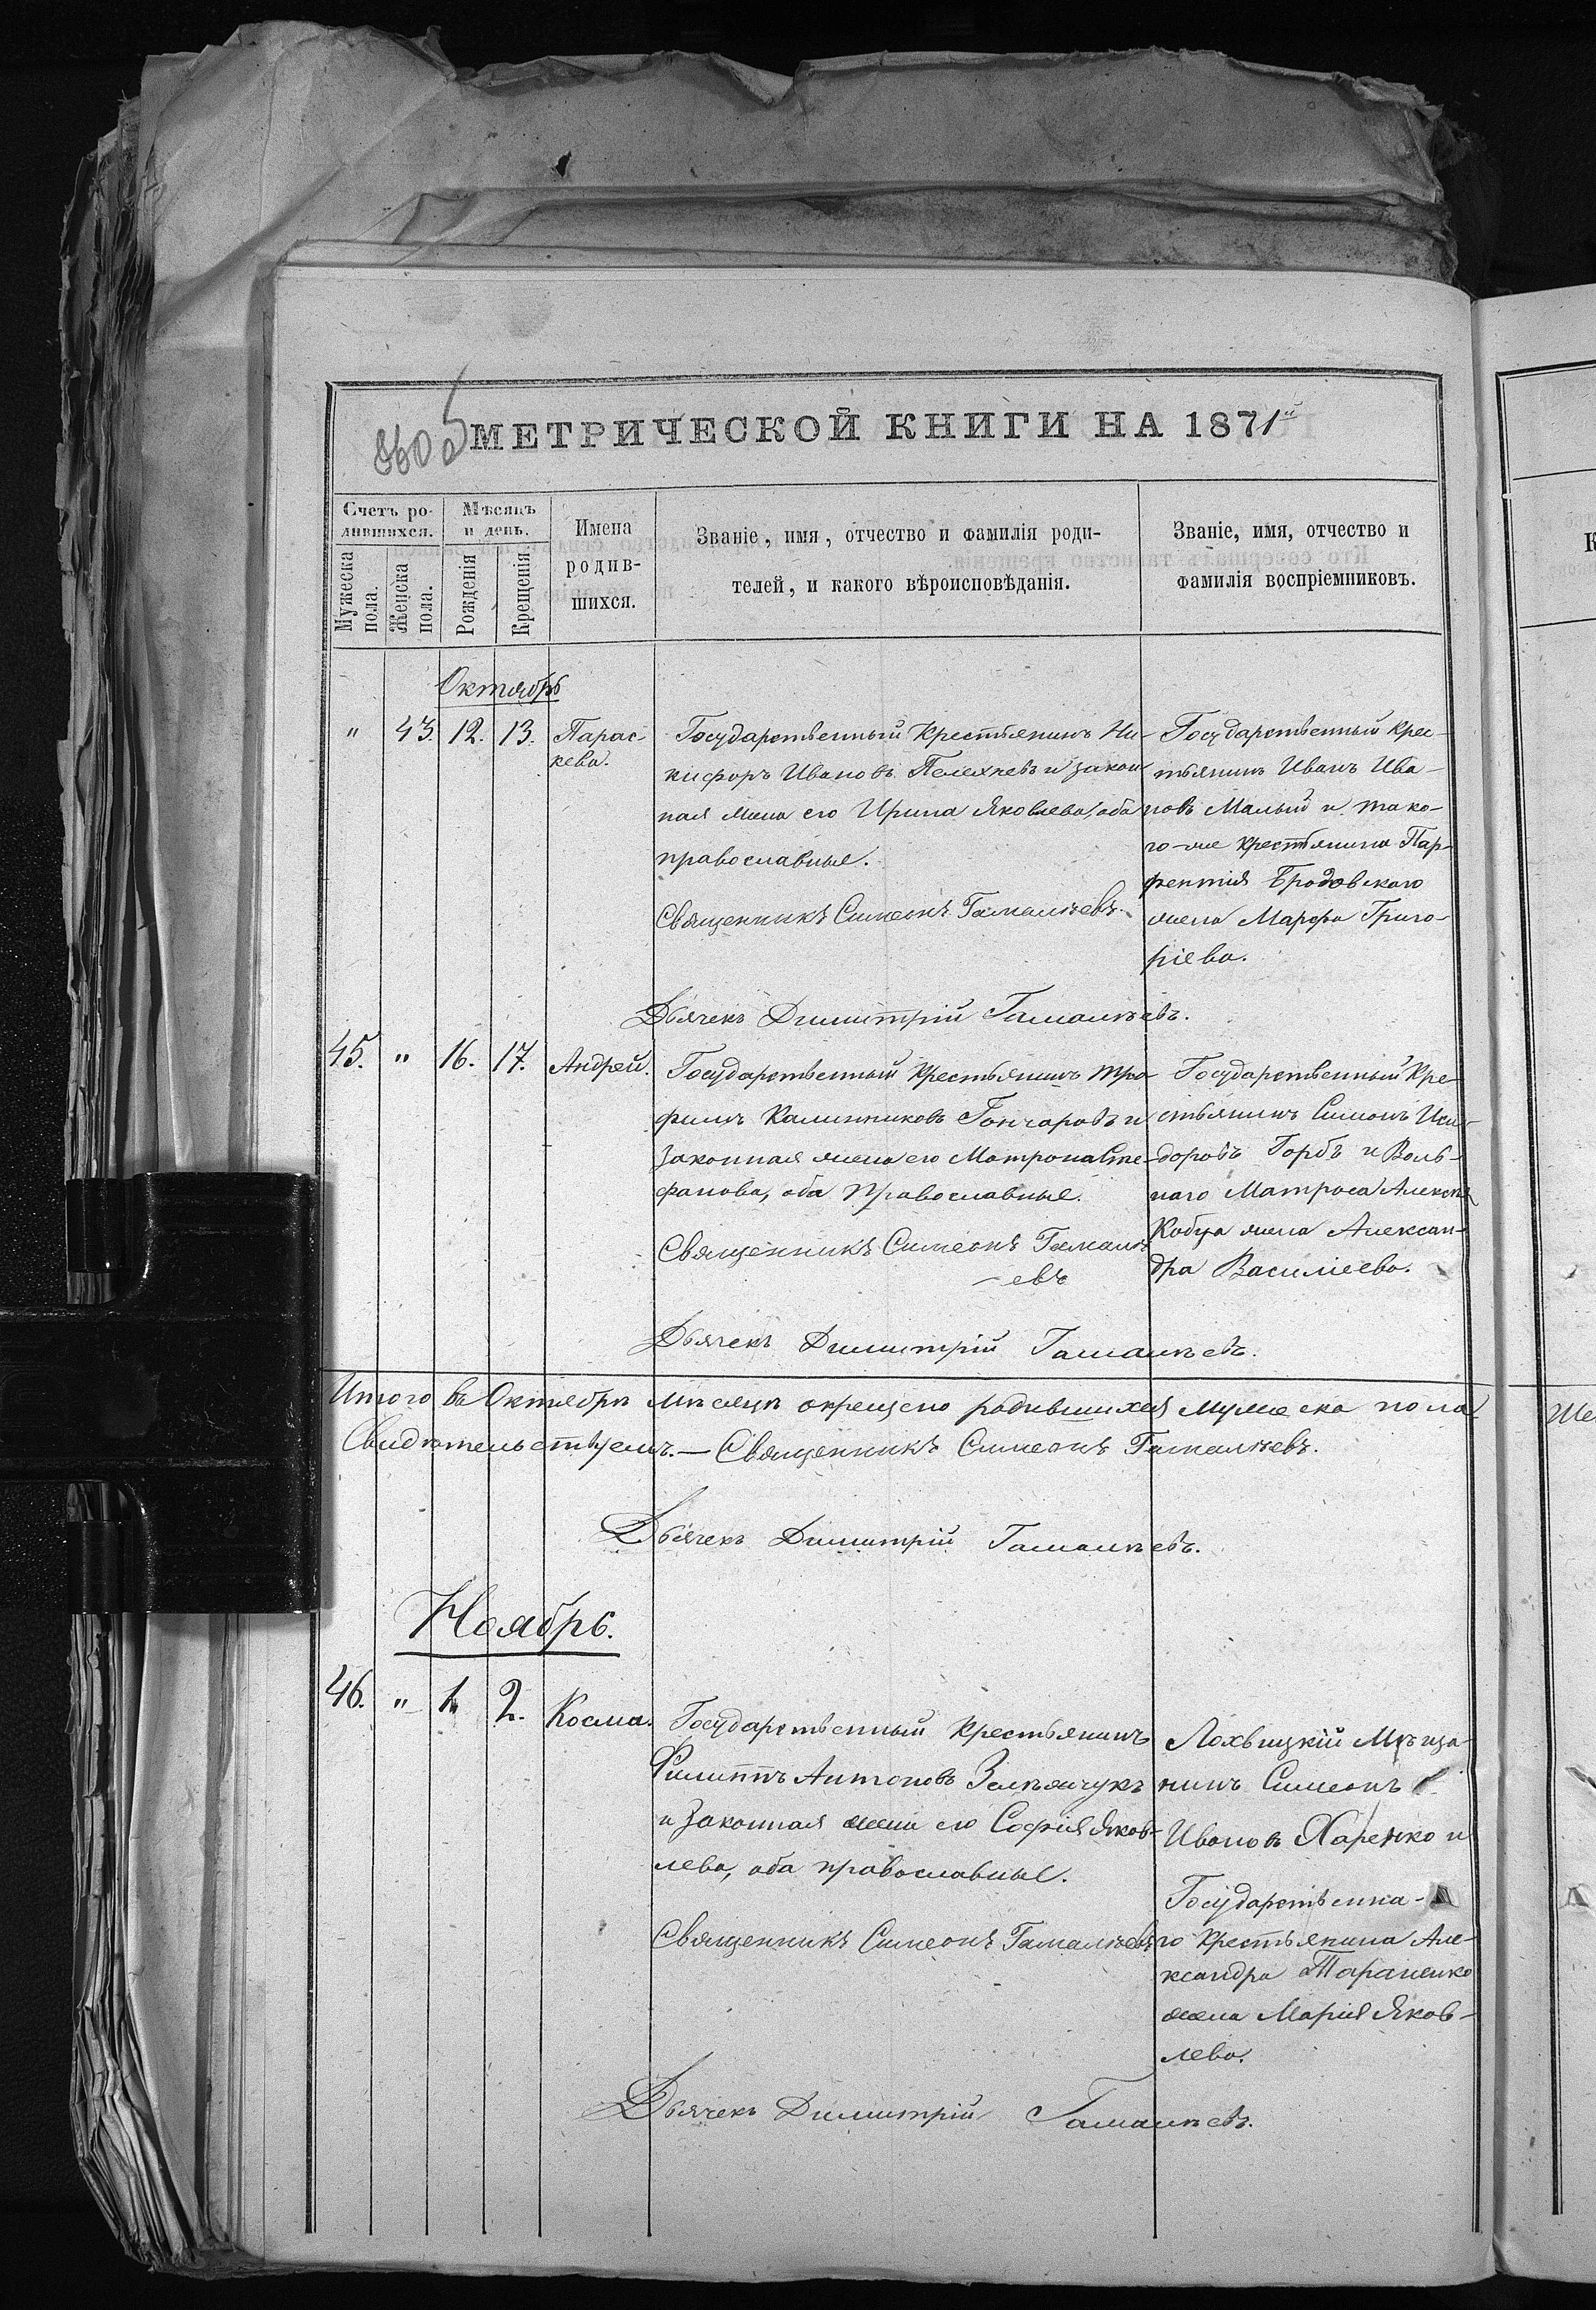 МЕТРИЧЕСКОЙ КНИГИ НА 1871й
Счетъ ро-
дившихся.
Мужеска пола.
Женска пола.
Мѣсяцъ
и день.
Рожденія
Крещенія
Имена
родив-
шихся.
Званіе, имя, отчество и фамилія роди-
телей, и какого вѣроисповѣданія.
Званіе, имя, отчество и
фамилія воспріемниковъ.
Октябрь
" 43. 12. 13. Парас-
кева.
Государственный крестьянинъ Ни-
кифоръ Ивановъ и закон
ная жена его Ирина Яковлева, оба
православные.
Священникъ Симеонъ Гамалѣевъ.
Государственный крес-
тьянинъ Иванъ Ива-
новъ Малый и тако-
го-же крестьянина Пар-
фентія Бродовскаго
жена Марфа Григо-
ріева.
Дьячекъ Димитрій Гамалѣевъ.
45. " 16. 17. Андрей.
Государственный крестьянинъ Тро-
фимъ Калинниковъ Гончаровъ и
законная жена его Матрона Сте-
фанова, оба православные.
Священникъ Симеонъ Гамалѣ
-евъ
Государственный кре-
стьянинъ Симонъ Иси-
доровъ Горбъ и Воль-
наго Матроса Алексѣя
Кобца жена Алексан-
дра Василіева.
Дьячекъ Димитрій Гамалѣевъ.
Итого въ Октябрѣ мѣсяцѣ окрещено родившихся мужеска пола
Свидѣтельствуемъ.— Священникъ Симеонъ Гамалѣевъ.
Дьячекъ Димитрій Гамалѣевъ.
Ноябрь.
46. " 1. 2. Косма.
Государственный крестьянинъ
Филиппъ Антоновъ
и законная жена его Софія Яков-
лева, оба православные.
Священникъ Симеонъ Гамалѣевъ
Лохвицкій Мѣща-
нинъ Симеонъ
Ивановъ Харенко и
Государственна-
го крестьянина Але-
ксандра Тараненко
жена Марія Яков-
лева.
Дьячекъ Димитрій Гамалѣевъ.